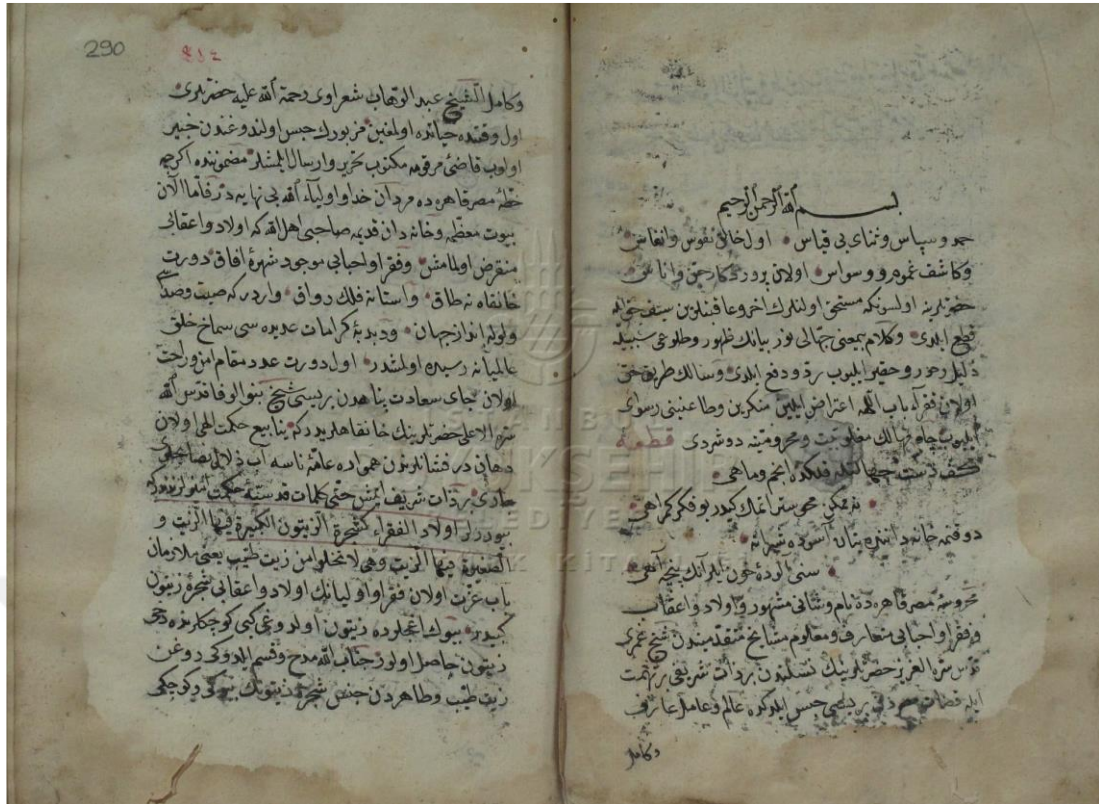 بسم الله الرحمن الرحيم
حمد و سپاس و ثنای بی قیاس اول خالق نفوس و انفاس
و کاشف غموم و وسواس اولان پروردکار جن و اناس
حضرتلرینه اولسونکه مستحق اولنلرك اخر و عاقبتلرین سیف حق ایله
قطع ایلدی و کلام بمعنی جمالی نور بیانك ظهور و طلوعی سببیله
ذلیل و حقیر ایلیوب رد و دفع ایلدی و سالك طریق حق
اولان فقراء باب اللهه اعتراض ایلین منکرین و طاعنینی رسوای
ایلیوب چاه مهالك مغلوبیت و محرومیته دوشردی قطعه
کف دست جهل ایله فلکده انجم و ماهی
نه ممکن محو ستر اتمك کیدر بو فکر کمراهی
دوقنمه خانه آسوده شیرانه
سنی آلوده خون ایلر آنك پنجه
محروسه مصر قاهره ده نام و شانی مشهور و اولاد و اعقاب
و فقرا و احبابی متعارف و معلوم مشایخ متقدمیندن شیخ غمری
قدس سره العزیز حضرتلرینك نسلندن بر ذات شریفی بر تهمت
ایله قضات مصردن بریسی حبس ایلدکده عالم و عامل عارف
و کامل
290
و کامل الشیخ عبد الوهاب شعراوی رحمة الله علیه حضرتلری
اول وقتده حیاتده اولمغین مزبورك حبس اولندوغندن خبیر
اولوب قاضئ مرقومه مکتوب تحریر و ارسال ایلمشلر مضموننده اکرچه
خطه مصر قاهره ده مردان خدا و اولیآء الله بی نهایه در فاما الآن
بیوت معظمه و خانه دان قدیمه صاحبی اهل الله که اولاد و اعقابی
منقرض اولمامش و فقرا و احبابی موجود شهره آفاق دورت
خانقاه نه طاق و آستانه فلك رواق واردر که صیت و صدا
و ولوله انوار جهان و دبدبه کرامات عدیده سی سماخ خلق
عالمیانه رسیده اولمشدر اول دورت عدد مقام امن و راحت
اولان جای سعادت پناهدن بریسی شیخ بنو الوفا قدس الله
سره الاعلی حضرتلرینك خانقاهلریدر که ینابیع حکمت الهی اولان
دهان درفشانلرندن همواره عامه ناسه آب زلال نصایحی
جاری بر ذات شریف ایمش حتی کلمات قدسیه حکمت
بیوررلر اولاد الفقراء کشجرة الزیتون الکبیرة فیها الزیت و
الصغیرة فیها الزیت و هی لا تخلو من زیت طیب یعنی ملازمان
باب عزت اولان فقرا و اولیانك اولاد و اعقابی شجره زیتون
کبیدر بیوك اغجلرده زیتون اولدوغی کبی کوچکلرنده دخی
زیتون حاصل اولور جناب الله مدح و قسم ایلدوکی دوغن
زیت طیب و طاهردن جنس شجره زیتونك بیوکی و کوچکی